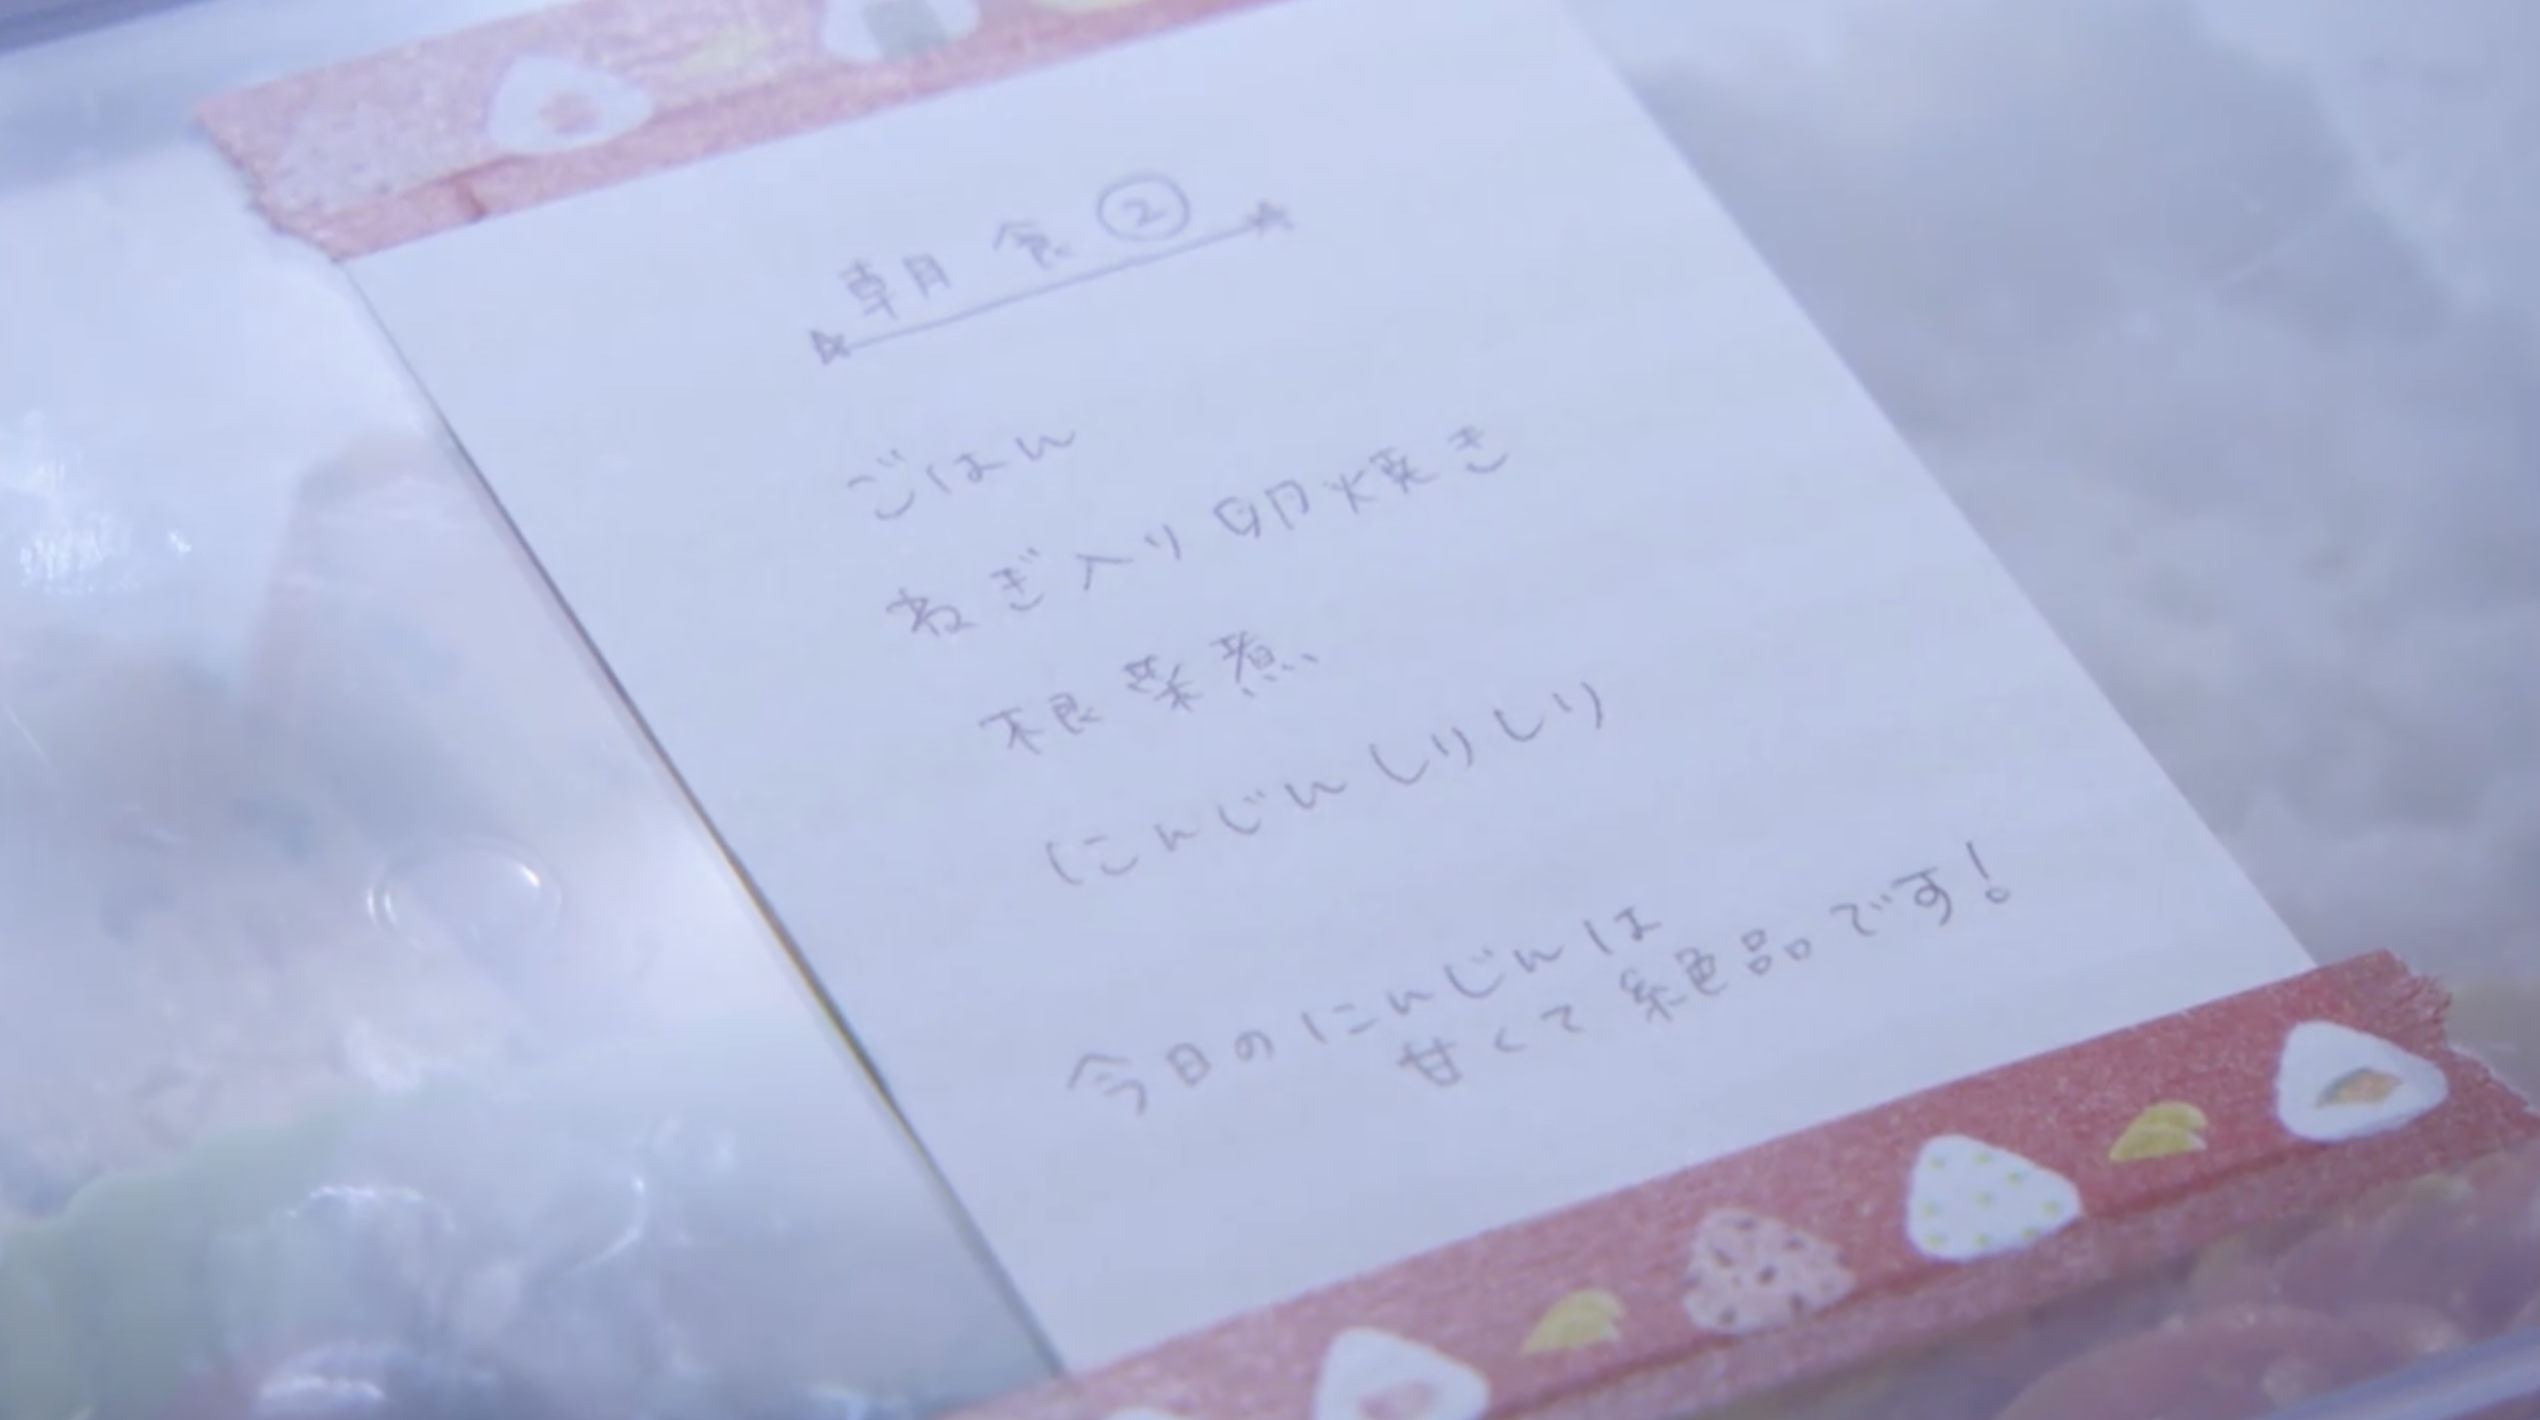 朝食②
ごはん
ねぎ入り卵焼き
根菜煮
にんじんしりしり
今日のにんじんは
甘くて絶品です!